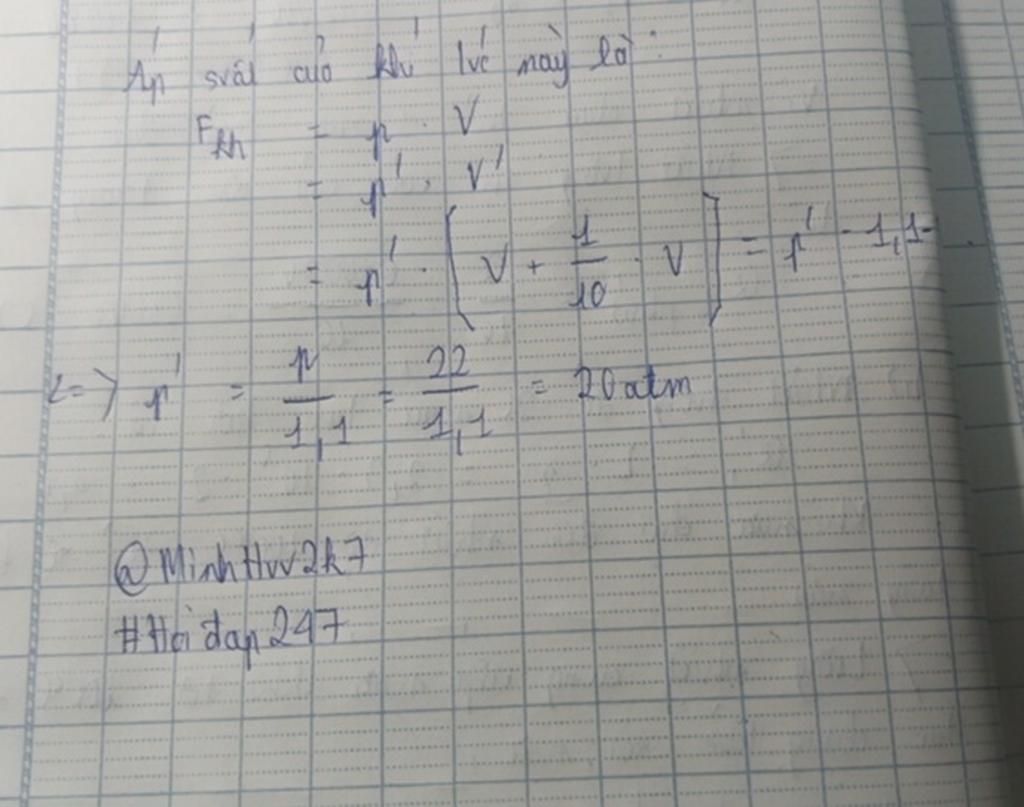 Áp suất của khí lúc này là:
F_kh = p . V
= p' . V'
= p' . [ V + 1/10 . V ] = p' . 1,1.
<=> p' = p/1,1 = 22/1,1 = 20 atm
@MinhHuv2k7
#Hoi đap 247